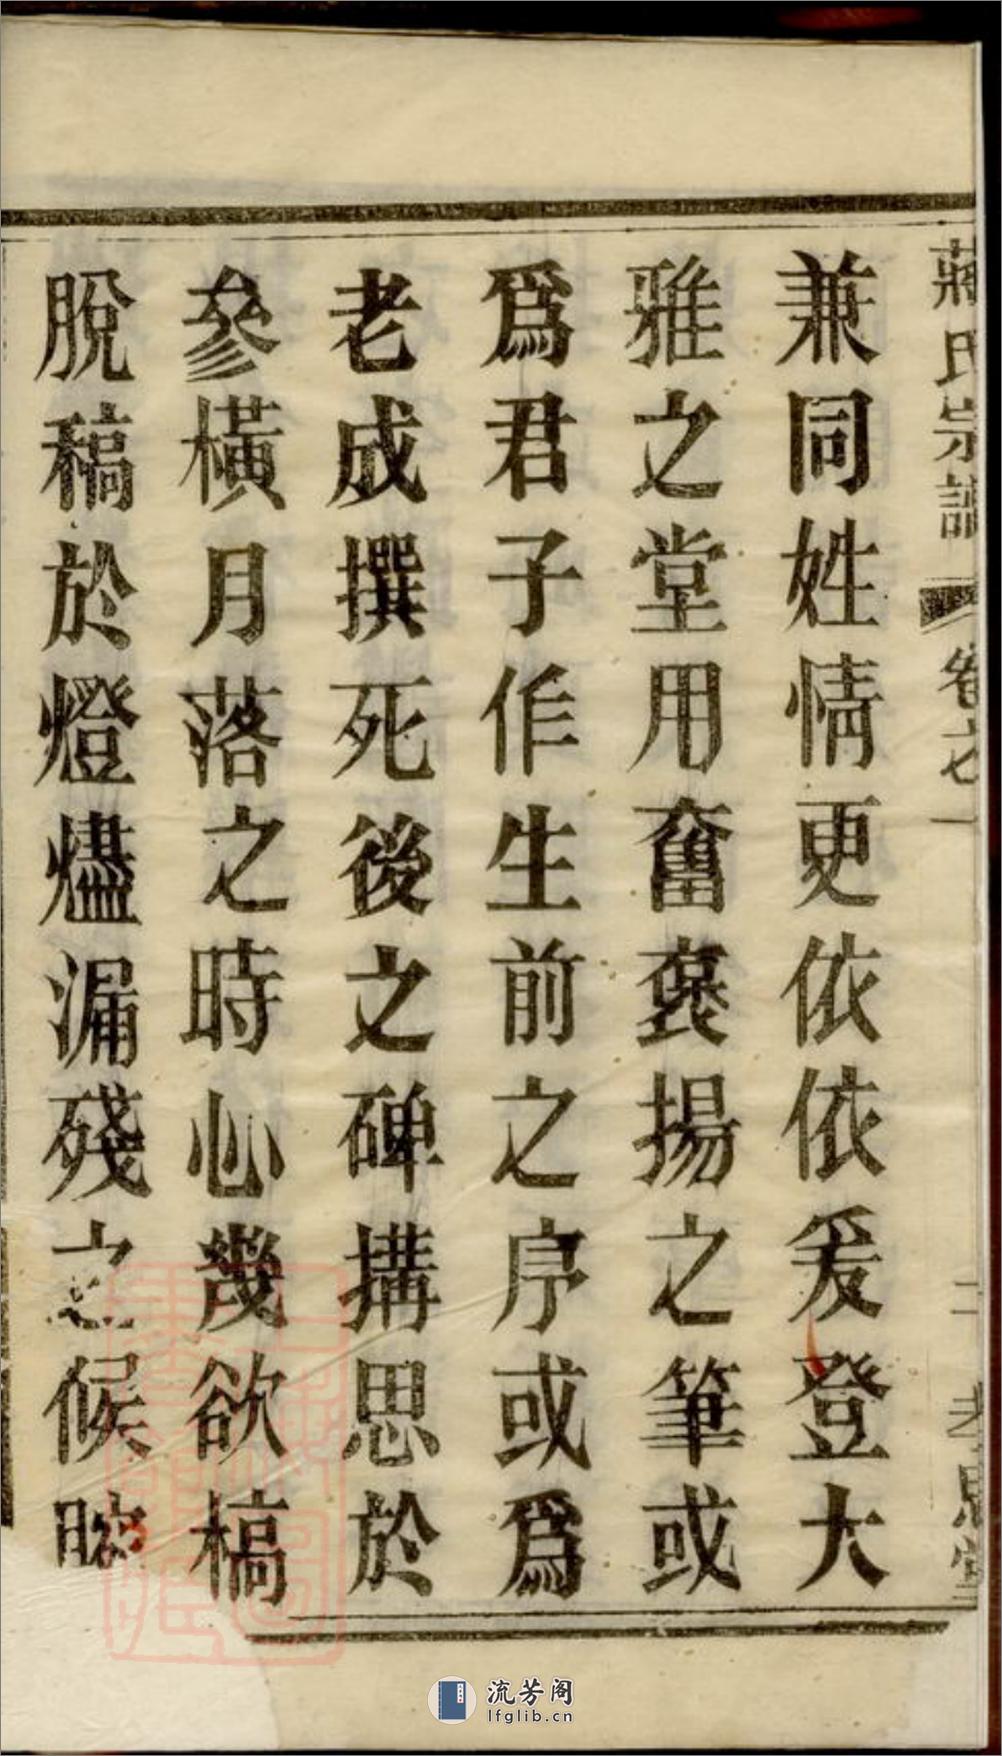 蔣氏宗譜 卷之一 二 孝思堂
兼同姓情更依依爰登大
雅之堂用奮褒揚之筆或
爲君子作生前之序或爲
老成撰死後之碑搆思於
參橫月落之時心幾欲槁
脫稿於燈燼漏殘之候
流芳阁
lfglib.cn